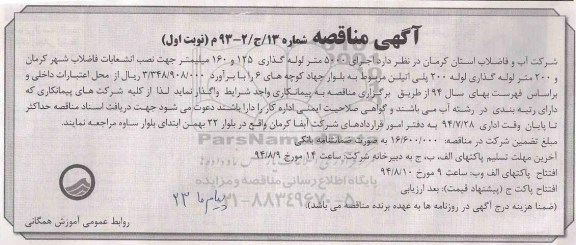 آگهی مناقصه شماره ۱۳/ج/۲-۹۳ م (نوبت اول)
شرکت آب و فاضلاب استان کرمان در نظر دارد اجرای ۵۰۰۰ متر لوله گذاری ۱۲۵ و ۱۶۰ میلیمتر جهت نصب انشعابات فاضلاب شهر کرمان
و ۲۰۰ متر لوله گذاری لوله ۲۰۰ پلی اتیلن مربوط به بلوار جهاد کوچه های ۶ را با برآورد ۳/۳۴۸/۹۰۸/۰۰۰ ریال از محل اعتبارات داخلی و
براساس فهرست بهای سال ۹۴ از طریق برگزاری مناقصه به پیمانکاری واجد شرایط واگذار نماید. لذا از کلیه شرکت های پیمانکاری که
دارای رتبه بندی در رشته آب می باشند و گواهی صلاحیت ایمنی اداره کار را دارا باشند دعوت می شود جهت دریافت اسناد مناقصه حداکثر
تا پایان وقت اداری ۹۴/۷/۲۸ به دفتر امور قراردادهای شرکت آبفا کرمان واقع در بلوار ۲۲ بهمن ابتدای بلوار ساوه مراجعه نمایند.
مبلغ تضمین شرکت در مناقصه: ۱۶/۶۰۰/۰۰۰ به صورت ضمانتنامه بانکی
آخرین مهلت تسلیم پاکتهای الف، ب، ج به دبیرخانه شرکت: ساعت ۱۴ مورخ ۹۴/۸/۹
افتتاح پاکتهای الف وب: ساعت ۹ مورخ ۹۴/۸/۱۰
افتتاح پاکت ج (پیشنهاد قیمت): بعد ارزیابی
(ضمنا هزینه درج آگهی در روزنامه ها به عهده برنده مناقصه می باشد)
پیام ما ۲۳
روابط عمومی آموزش همگانی
ParsNamadData
پایگاه اطلاع رسانی مناقصه و مزایده
۰۲۱-۸۸۳۴۹۶۷۰-۵